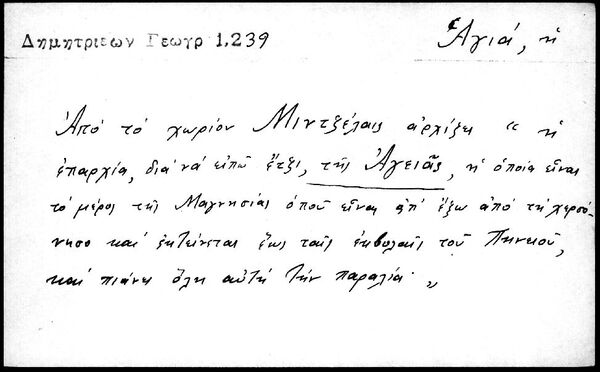 Δημητριεων Γεωγρ 1.239
Ἁγιά, ἡ
Ἀπό τό χωρίον Μιντζέλαις ἀρχίζει " ἡ
ἐπαρχία, διά νά εἰπῶ ἔτζι, τῆς Ἁγειᾶς, ἡ ὁποία εἶναι
τό μέρος τῆς Μαγνησίας ὁποῦ εἶναι ἀπ' ἔξω ἀπό τη χερσό-
νησο καί ἐκτείνεται ἕως ταῖς ἐκβολαῖς τοῦ Πηνειοῦ,
καί πιάνει ὅλη αὐτή τήν παραλία "